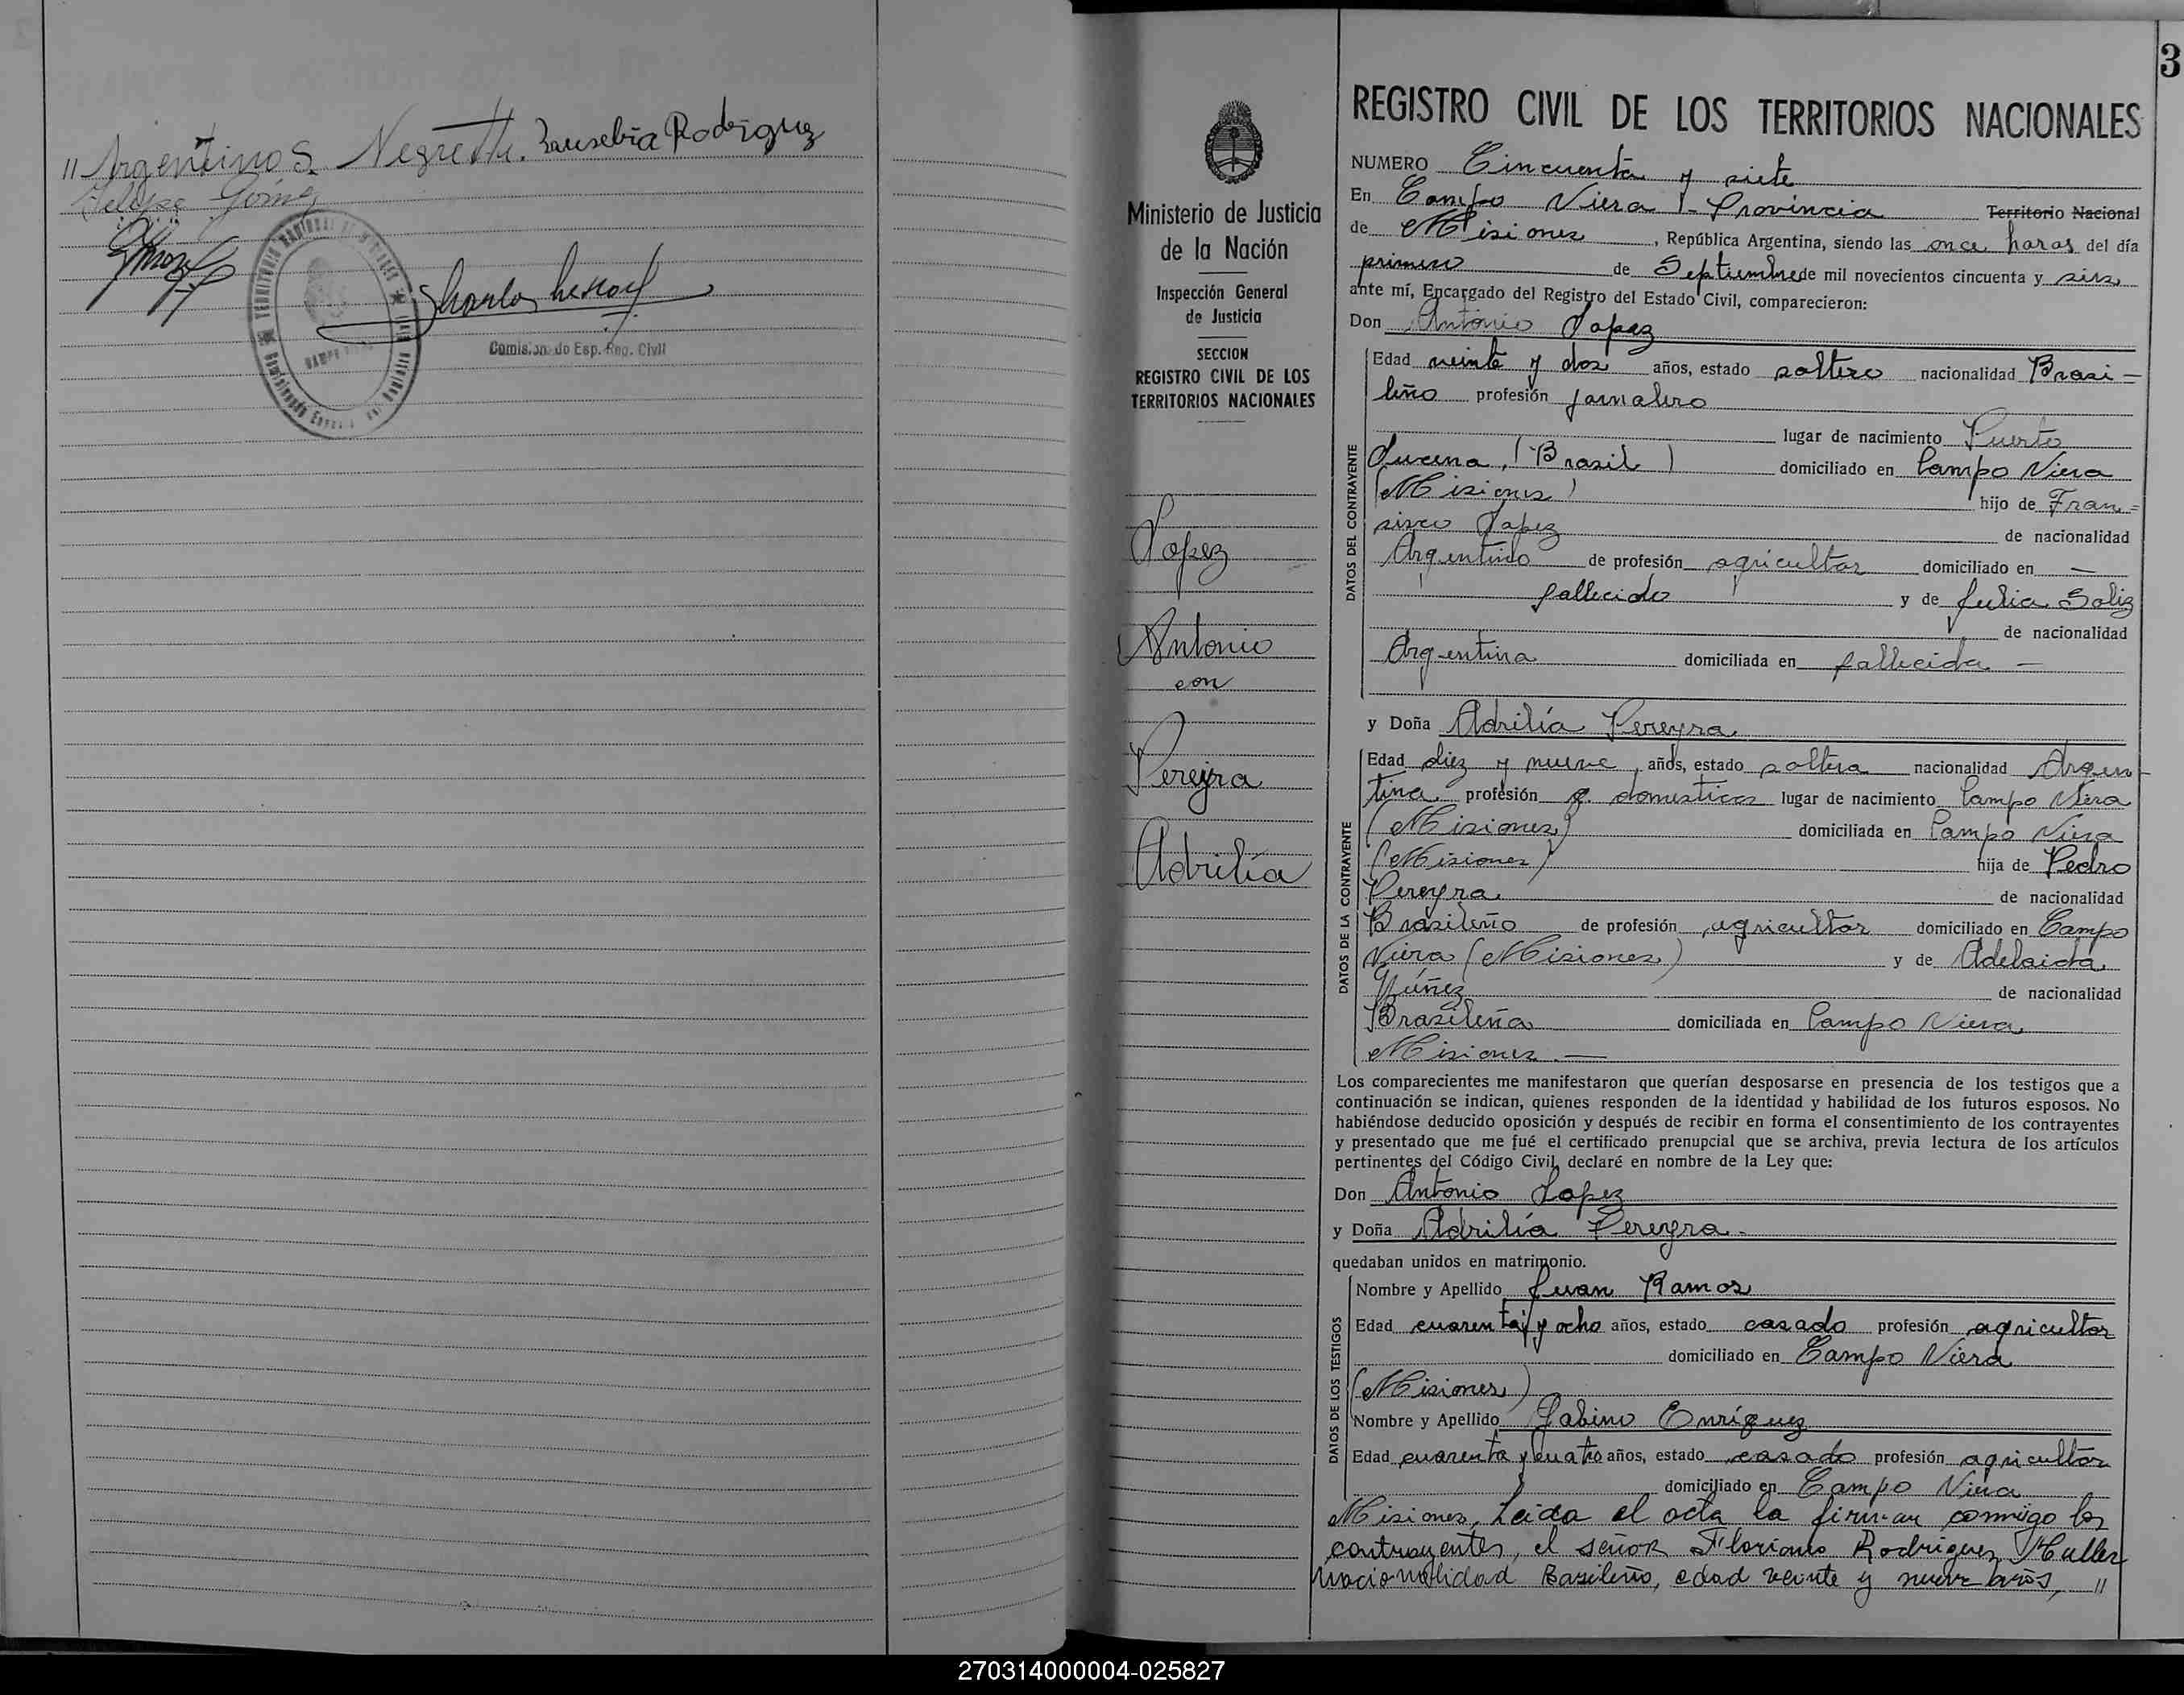 " Argentino S. Negrette. Eausebia Rodriguez
Felipe Going
Comisionado Esp. Reg. Civil
3
Ministerio de Justicia
de la Nación
Inspección General
de Justicia
SECCION
REGISTRO CIVIL DE LOS
TERRITORIOS NACIONALES
Lopez
Antonio
con
Pereyra
Adrilía
REGISTRO CIVIL DE LOS TERRITORIOS NACIONALES
NUMERO Cincuenta y siete
En Campo Viera - Provincia Territorio Nacional
de Misiones, República Argentina, siendo las once horas del día
primero de Septiembre de mil novecientos cincuenta y seis
ante mí, Encargado del Registro del Estado Civil, comparecieron:
Don Antonio Lopez
DATOS DEL CONTRAYENTE
Edad veinte y dos años, estado soltero nacionalidad Brasi=
leño profesión jornalero
lugar de nacimiento Puerto
Lucena, (Brasil) domiciliado en Campo Viera
(Misiones) hijo de Fran=
sisco Lopez de nacionalidad
Argentino de profesión agricultor domiciliado en —
fallecido y de Julia Soliz
de nacionalidad
Argentina domiciliada en fallecida —
y Doña Adrilía Pereyra
DATOS DE LA CONTRAYENTE
Edad diez y nueve, años, estado soltera nacionalidad Argen-
tina profesión q. domesticos lugar de nacimiento Campo Viera
(Misiones) domiciliada en Campo Viera
(Misiones) hija de Pedro
Pereyra de nacionalidad
Brasileño de profesión agricultor domiciliado en Campo
Viera (Misiones) y de Adelaida
Núñez de nacionalidad
Brasileña domiciliada en Campo Viera
Misiones. —
Los comparecientes me manifestaron que querían desposarse en presencia de los testigos que a
continuación se indican, quienes responden de la identidad y habilidad de los futuros esposos. No
habiéndose deducido oposición y después de recibir en forma el consentimiento de los contrayentes
y presentado que me fué el certificado prenupcial que se archiva, previa lectura de los artículos
pertinentes del Código Civil, declaré en nombre de la Ley que:
Don Antonio Lopez
y Doña Adrilía Pereyra -
quedaban unidos en matrimonio.
DATOS DE LOS TESTIGOS
Nombre y Apellido Juan Ramos
Edad cuarenta y ocho años, estado casado profesión agricultor
domiciliado en Campo Viera
(Misiones)
Nombre y Apellido Sabino Enríquez
Edad cuarenta y cuatro años, estado casado profesión agricultor
domiciliado en Campo Viera
Misiones, Leida el acta la firman conmigo los
contrayentes, el señor Floriano Rodriguez Muller
nacionalidad Basileño, edad veinte y nueve años, "
270314000004-025827